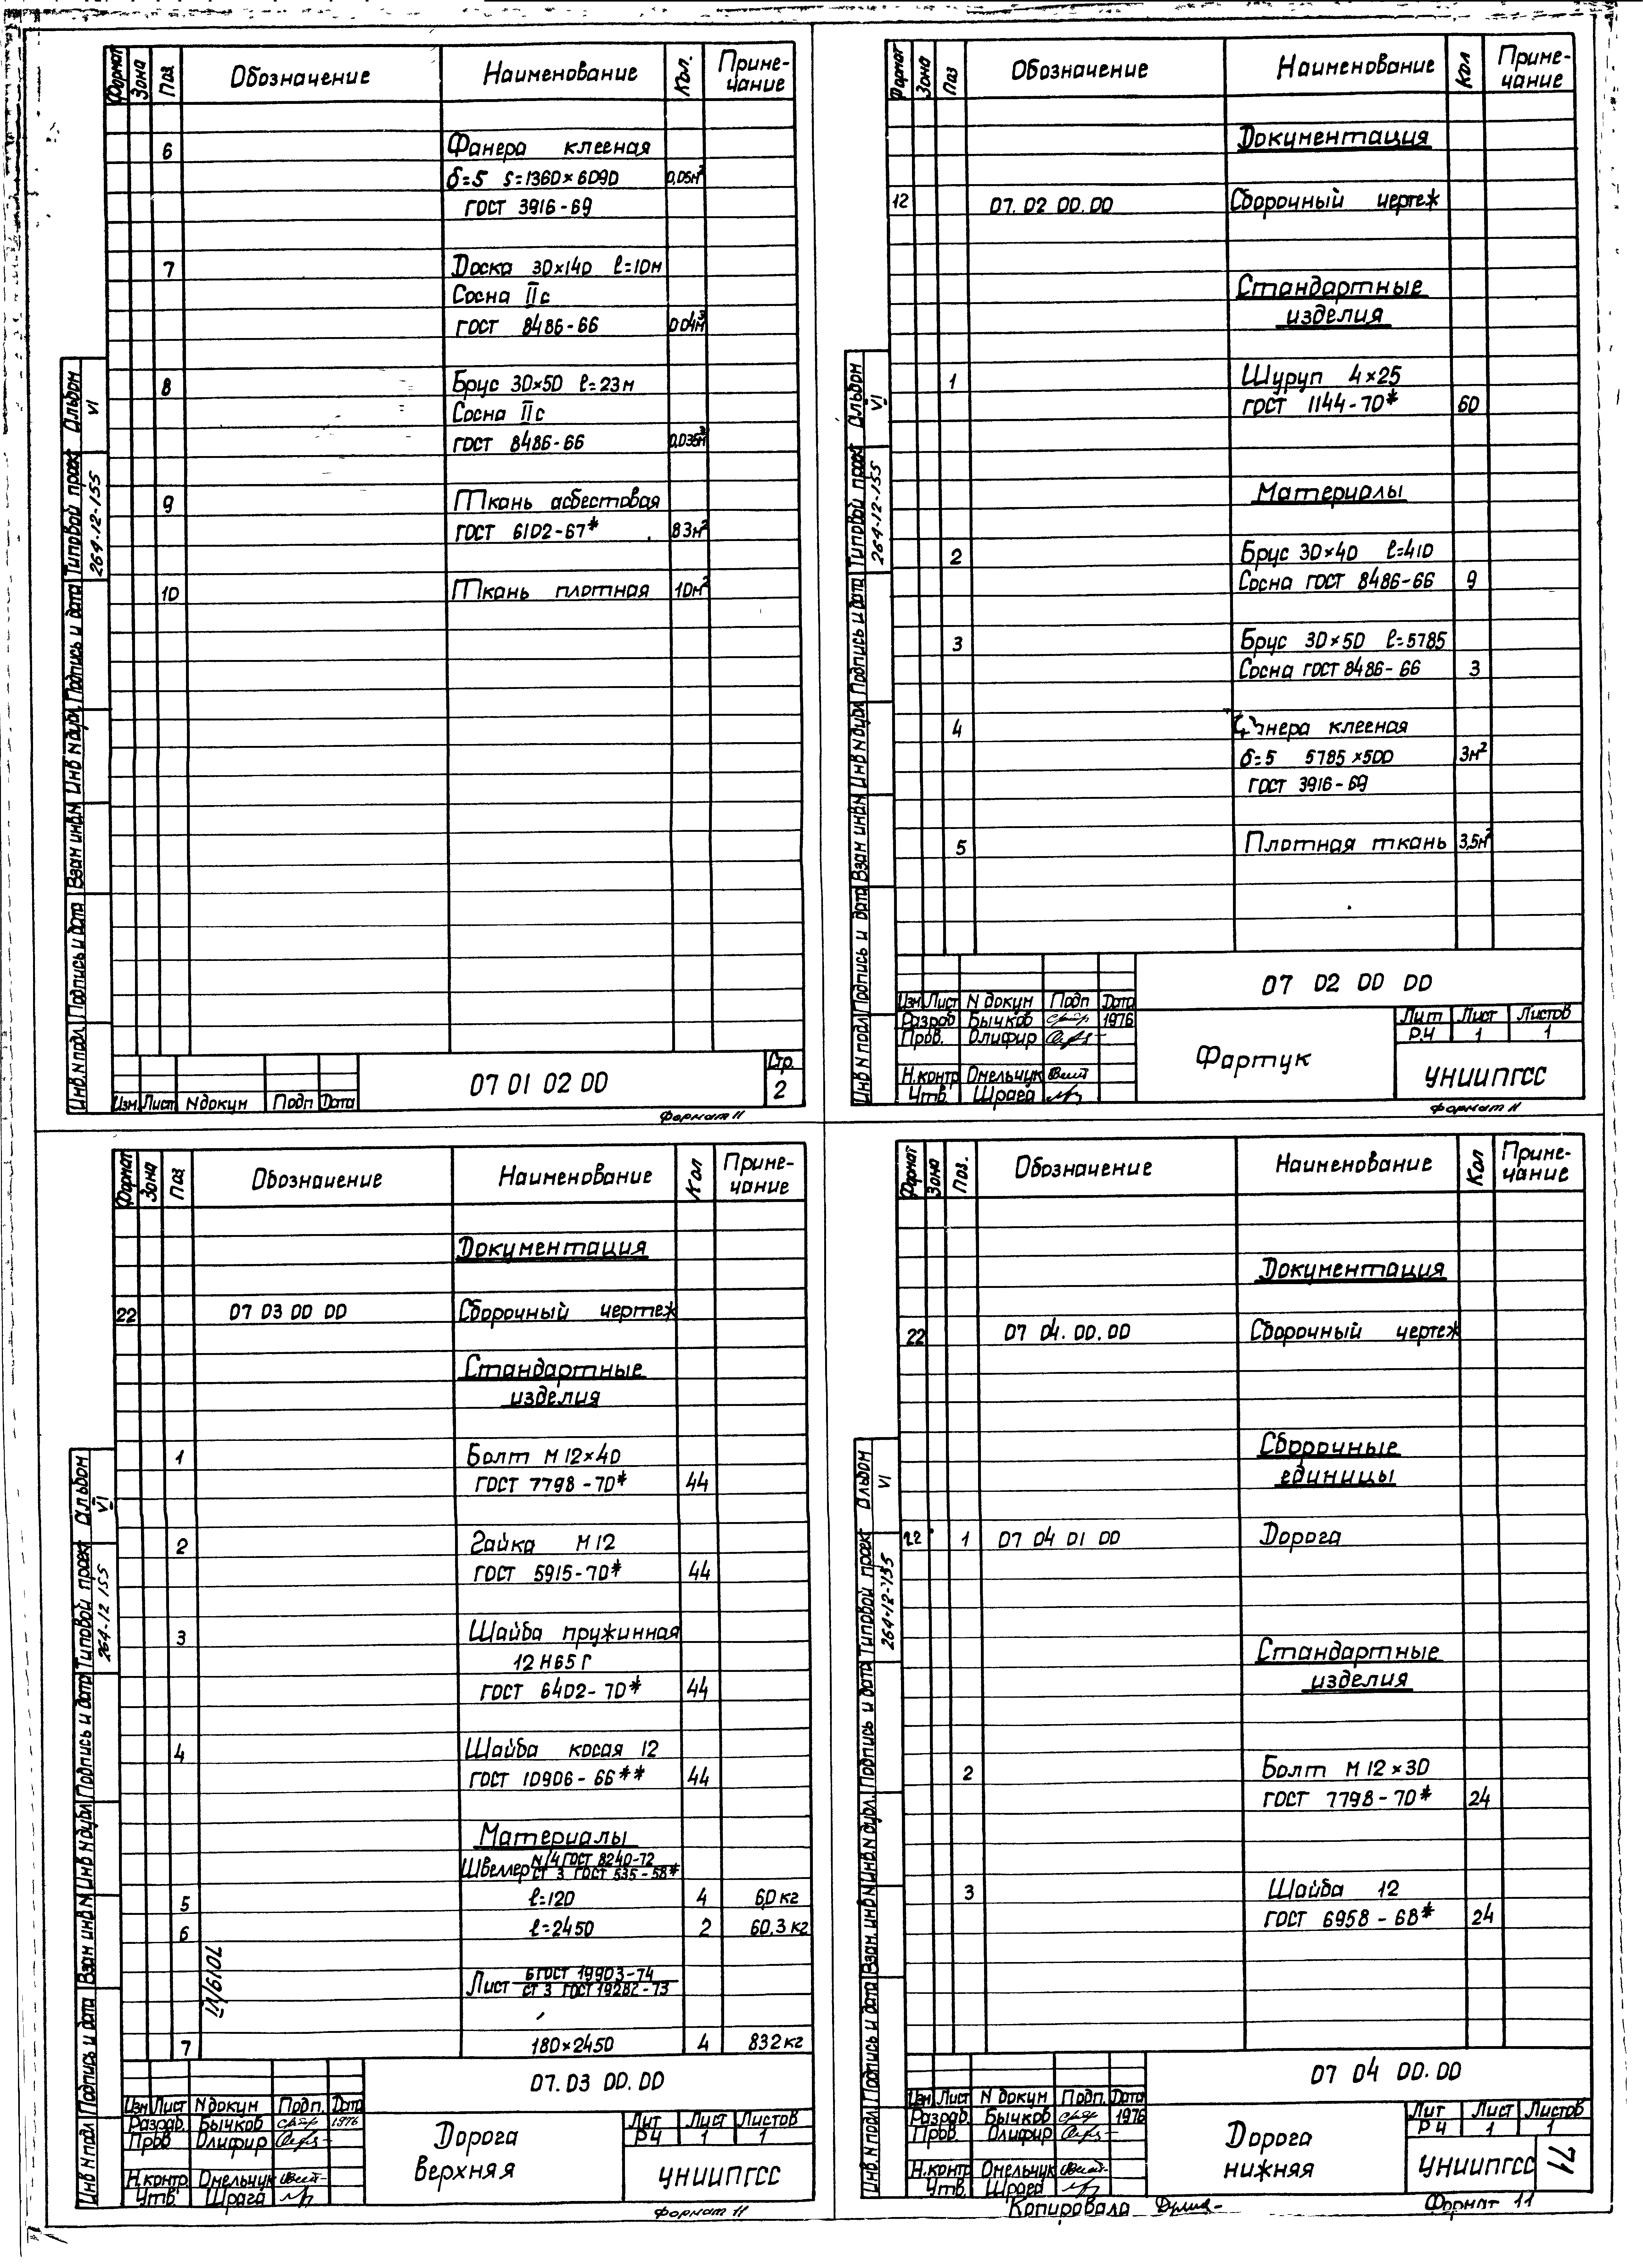 Формат Зона Поз. Обозначение Наименование Кол. Приме-
чание
6 Фанера клееная
δ=5 S=1360×6090 0,05м²
ГОСТ 3916-69
7 Доска 30×140 ℓ=10м
Сосна IIс
ГОСТ 8486-66 0,04м³
8 Брус 30×50 ℓ=23м
Сосна IIс
ГОСТ 8486-66 0,035м³
9 Ткань асбестовая
ГОСТ 6102-67* 83м²
10 Ткань плотная 10м²
Альбом
VI
Типовой проект
264-12-155
Подпись и дата
Инв N дубл
Взам инв N
Подпись и дата
Инв. N подл.
07 01 02 00
Стр.
2
Изм Лист N докум Подп Дата
Формат 11
Формат Зона Поз Обозначение Наименование Кол Приме-
чание
Документация
12 07.02 00.00 Сборочный чертеж
Стандартные
изделия
1 Шуруп 4×25
ГОСТ 1144-70* 60
Материалы
2 Брус 30×40 ℓ=410
Сосна ГОСТ 8486-66 9
3 Брус 30×50 ℓ=5785
Сосна ГОСТ 8486-66 3
4 Фанера клееная
δ=5 5785×500 3м²
ГОСТ 3916-69
5 Плотная ткань 3,5м²
Альбом
VI
Типовой проект
264-12-155
Подпись и дата
Инв N дубл
Взам инв N
Подпись и дата
Инв N подл
07 02 00 00
Изм. Лист N докум Подп Дата
Разраб Бычков 1976
Пров. Олифир
Н.контр Омельчук
Утв. Шрага
Фартук
Лит Лист Листов
Р.Ч 1 1
УНИИПГСС
Формат 11
Формат Зона Поз. Обозначение Наименование Кол Приме-
чание
Документация
22 07 03 00 00 Сборочный чертеж
Стандартные
изделия
1 Болт М12×40
ГОСТ 7798-70* 44
2 Гайка М12
ГОСТ 5915-70* 44
3 Шайба пружинная
12 Н65Г
ГОСТ 6402-70* 44
4 Шайба косая 12
ГОСТ 10906-66** 44
Материалы
Швеллер N14 ГОСТ 8240-72
СТ 3 ГОСТ 535-58*
5 ℓ=120 4 6,0 кг
6 ℓ=2450 2 60,3 кг
Лист 6 ГОСТ 19903-74
СТ 3 ГОСТ 19282-73
7 180×2450 4 83.2 кг
7019/VI
Альбом
VI
Типовой проект
264-12 155
Подпись и дата
Инв N дубл
Взам инв N
Подпись и дата
Инв N подл
07.03 00.00
Изм Лист N докум Подп. Дата
Разраб. Бычков 1976
Пров Олифир
Н.контр Омельчук
Утв. Шрага
Дорога
верхняя
Лит Лист Листов
Р Ч 1 1
УНИИПГСС
Формат 11
Формат Зона Поз. Обозначение Наименование Кол Приме-
чание
Документация
22 07 04.00.00 Сборочный чертеж
Сборочные
единицы
22 1 07 04 01 00 Дорога
Стандартные
изделия
2 Болт М12×30
ГОСТ 7798-70* 24
3 Шайба 12
ГОСТ 6958-68* 24
Альбом
VI
Типовой проект
264-12-155
Подпись и дата
Инв. N дубл.
Взам. инв N
Подпись и дата
Инв. N подл
07 04 00.00
Изм Лист N докум Подп. Дата
Разраб. Бычков 1976
Пров. Олифир
Н.контр Омельчук
Утв. Шрага
Дорога
нижняя
Лит Лист Листов
Р Ч 1 1
УНИИПГСС
71
Копировала
Формат 11